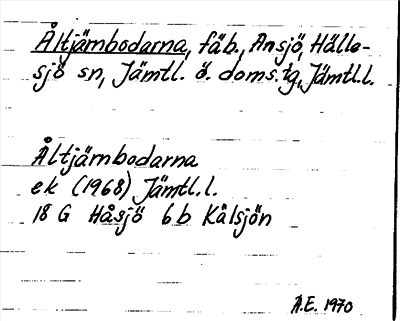 Åltjärnbodarna, fäb., Ansjö, Hälle-
sjö sn, Jämtl. ö. doms. tg, Jämtl.l.
Åltjärnbodarna
ek (1968) Jämtl.l.
18 G Håsjö 6b Kälsjön
Å.E. 1970